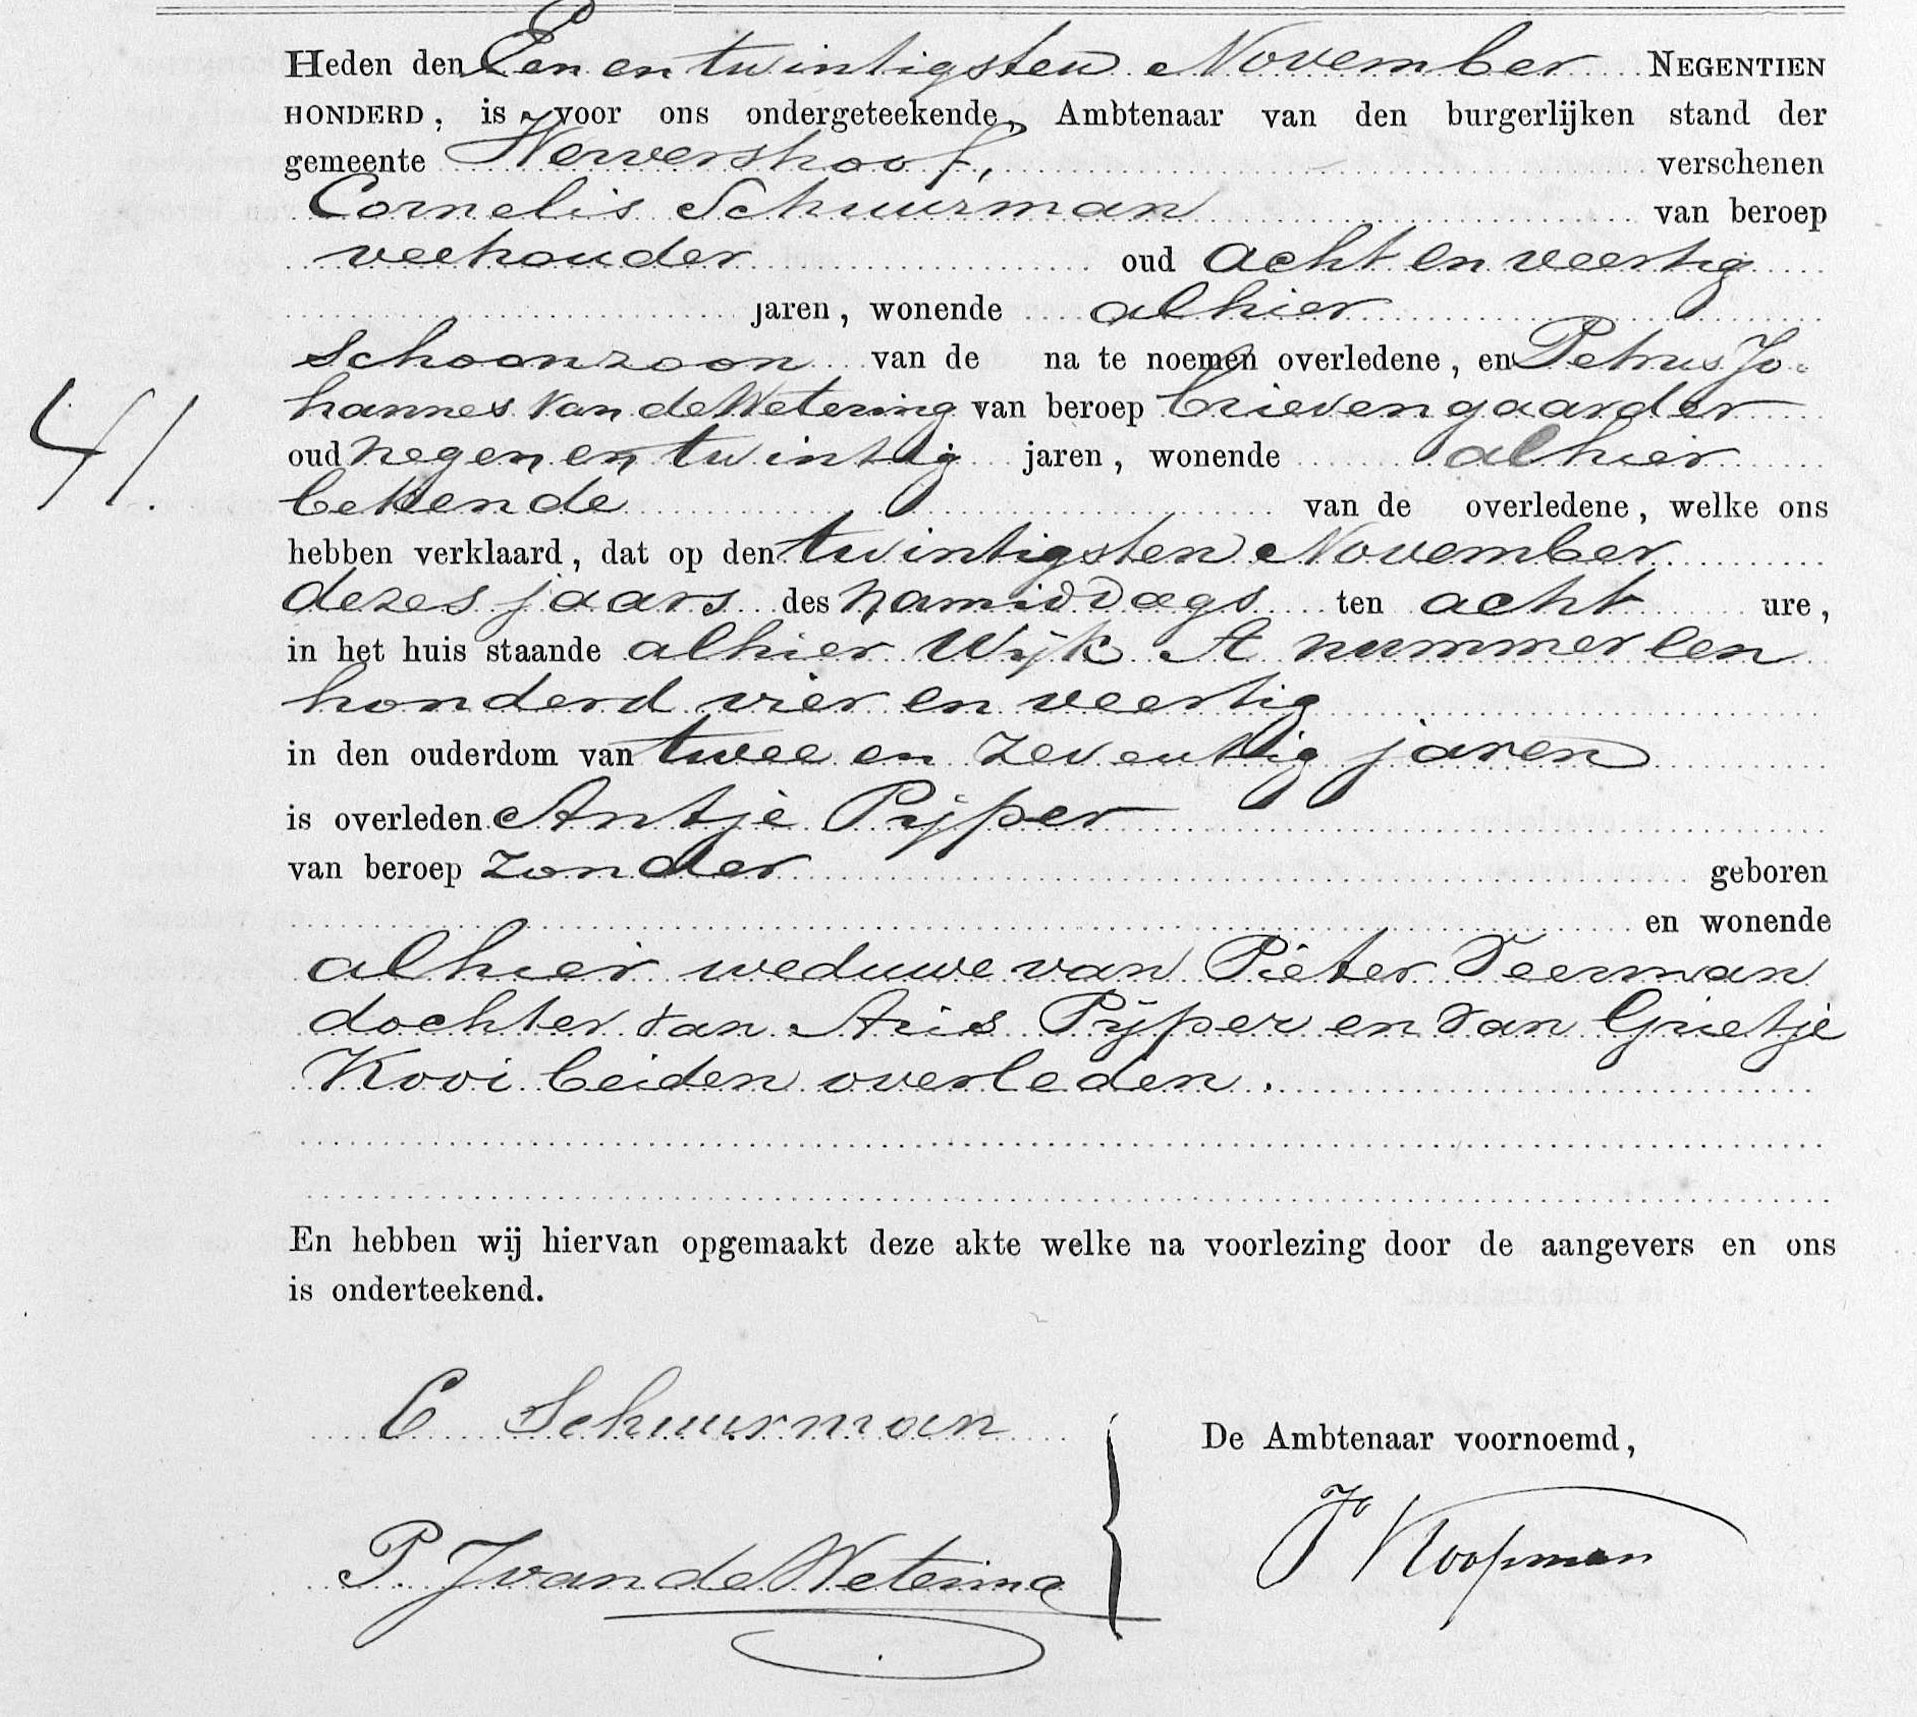 Heden den Een en twintigsten November NEGENTIEN
HONDERD, is voor ons ondergeteekende, Ambtenaar van den burgerlijken stand der
gemeente Wervershoof, verschenen
Cornelis Schuurman van beroep
veehouder oud acht en veertig
jaren, wonende alhier
schoonzoon van de na te noemen overledene, en Petrus Jo-
hannes van de Wetering van beroep brievengaarder
oud negen en twintig jaren, wonende alhier
bekende van de overledene, welke ons
hebben verklaard, dat op den twintigsten November
dezes jaars des namiddags ten acht ure,
in het huis staande alhier Wijk A nummer een
honderd vier en veertig
41.
in den ouderdom van twee en zeventig jaren
is overleden Antje Pijper
van beroep zonder geboren
en wonende
alhier weduwe van Pieter Veerman
dochter van Aris Pijper en van Grietje
Kooi beiden overleden.
En hebben wij hiervan opgemaakt deze akte welke na voorlezing door de aangevers en ons
is onderteekend.
C Schuurman
De Ambtenaar voornoemd,
P. J van de Wetering
Koopman